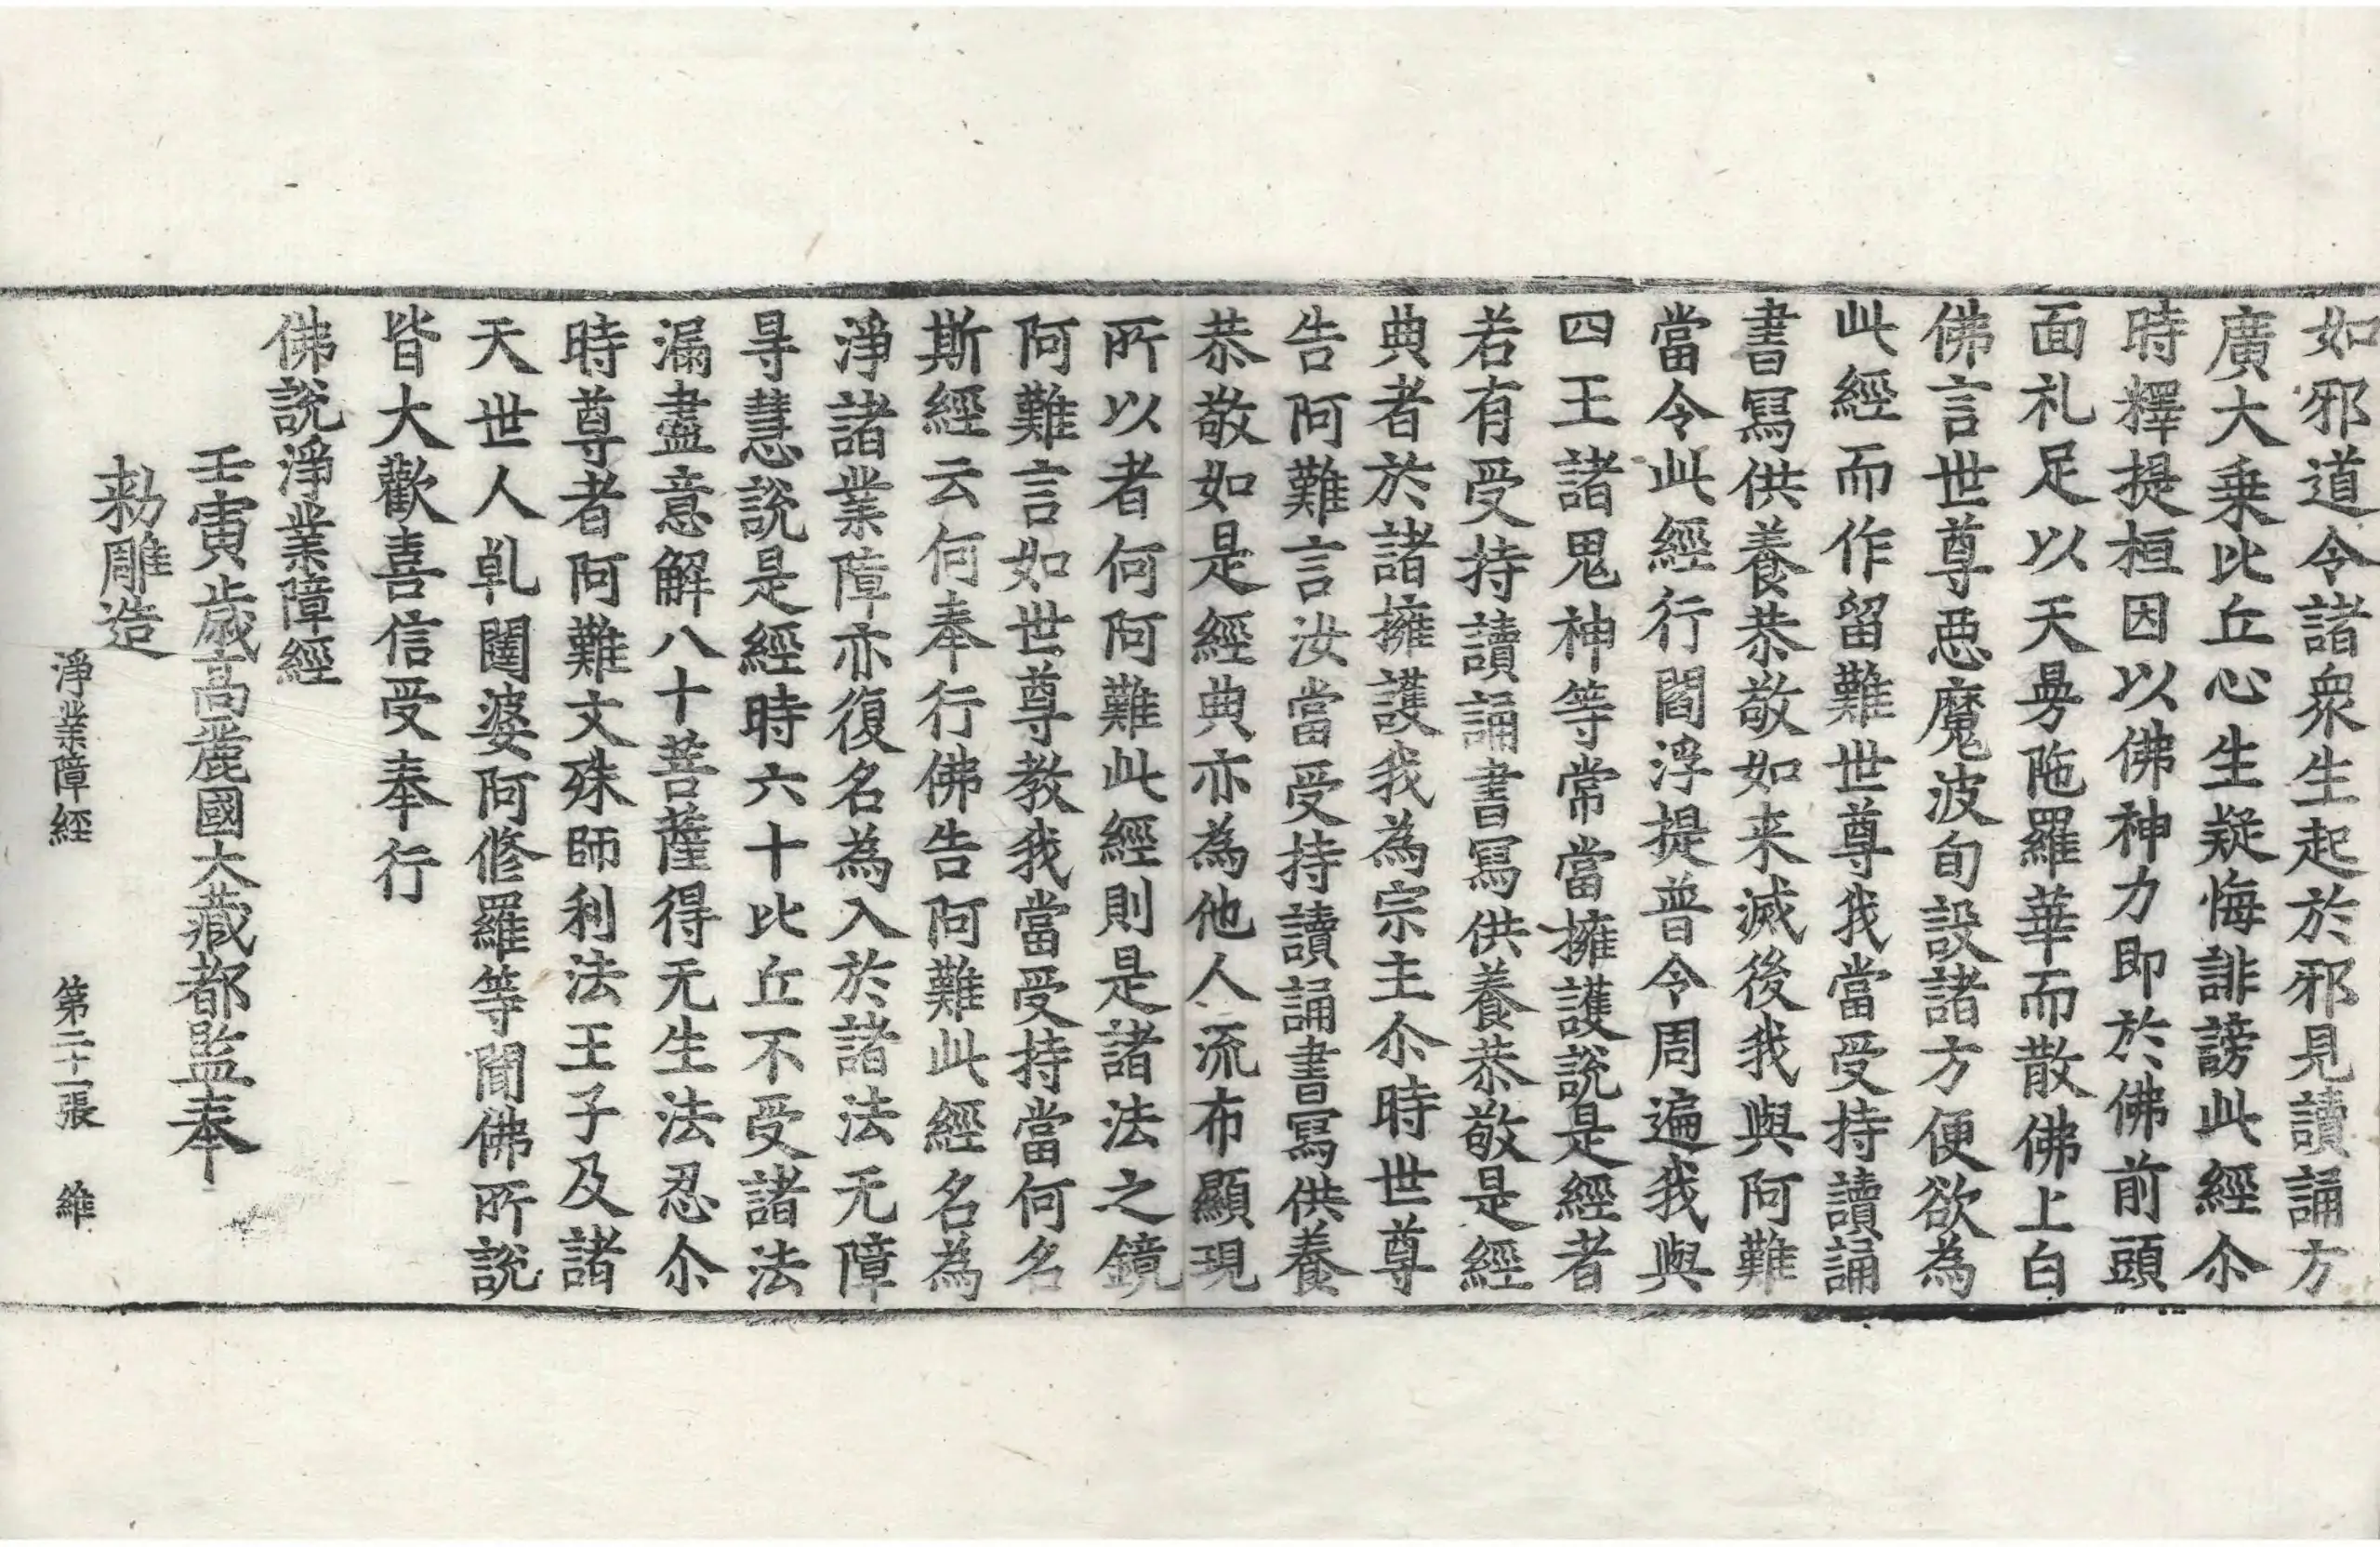 如邪道令諸衆生起於邪見讀誦方
廣大乗比丘心生疑悔誹謗此經尒
時釋提桓因以佛神力即於佛前頭
面礼足以天曼陁羅華而散佛上白
佛言世尊惡魔波旬設諸方便欲為
此經而作留難世尊我當受持讀誦
書寫供養恭敬如来滅後我與阿難
當令此經行閻浮提普令周遍我與
四王諸鬼神等常當擁護説是經者
若有受持讀誦書寫供養恭敬是經
典者於諸擁護我為宗主尒時世尊
告阿難言汝當受持讀誦書寫供養
恭敬如是經典亦為他人流布顯現
所以者何阿難此經則是諸法之鏡
阿難言如世尊教我當受持當何名
斯經云何奉行佛告阿難此經名為
淨諸業障亦復名為入於諸法无障
㝵慧説是經時六十比丘不受諸法
漏盡意解八十菩薩得无生法忍尒
時尊者阿難文殊師利法王子及諸
天世人乹闥婆阿修羅等聞佛所説
皆大歡喜信受奉行
佛説淨業障經
壬寅歳高麗國大藏都監奉
勑雕造
淨業障經 第二十一張 維